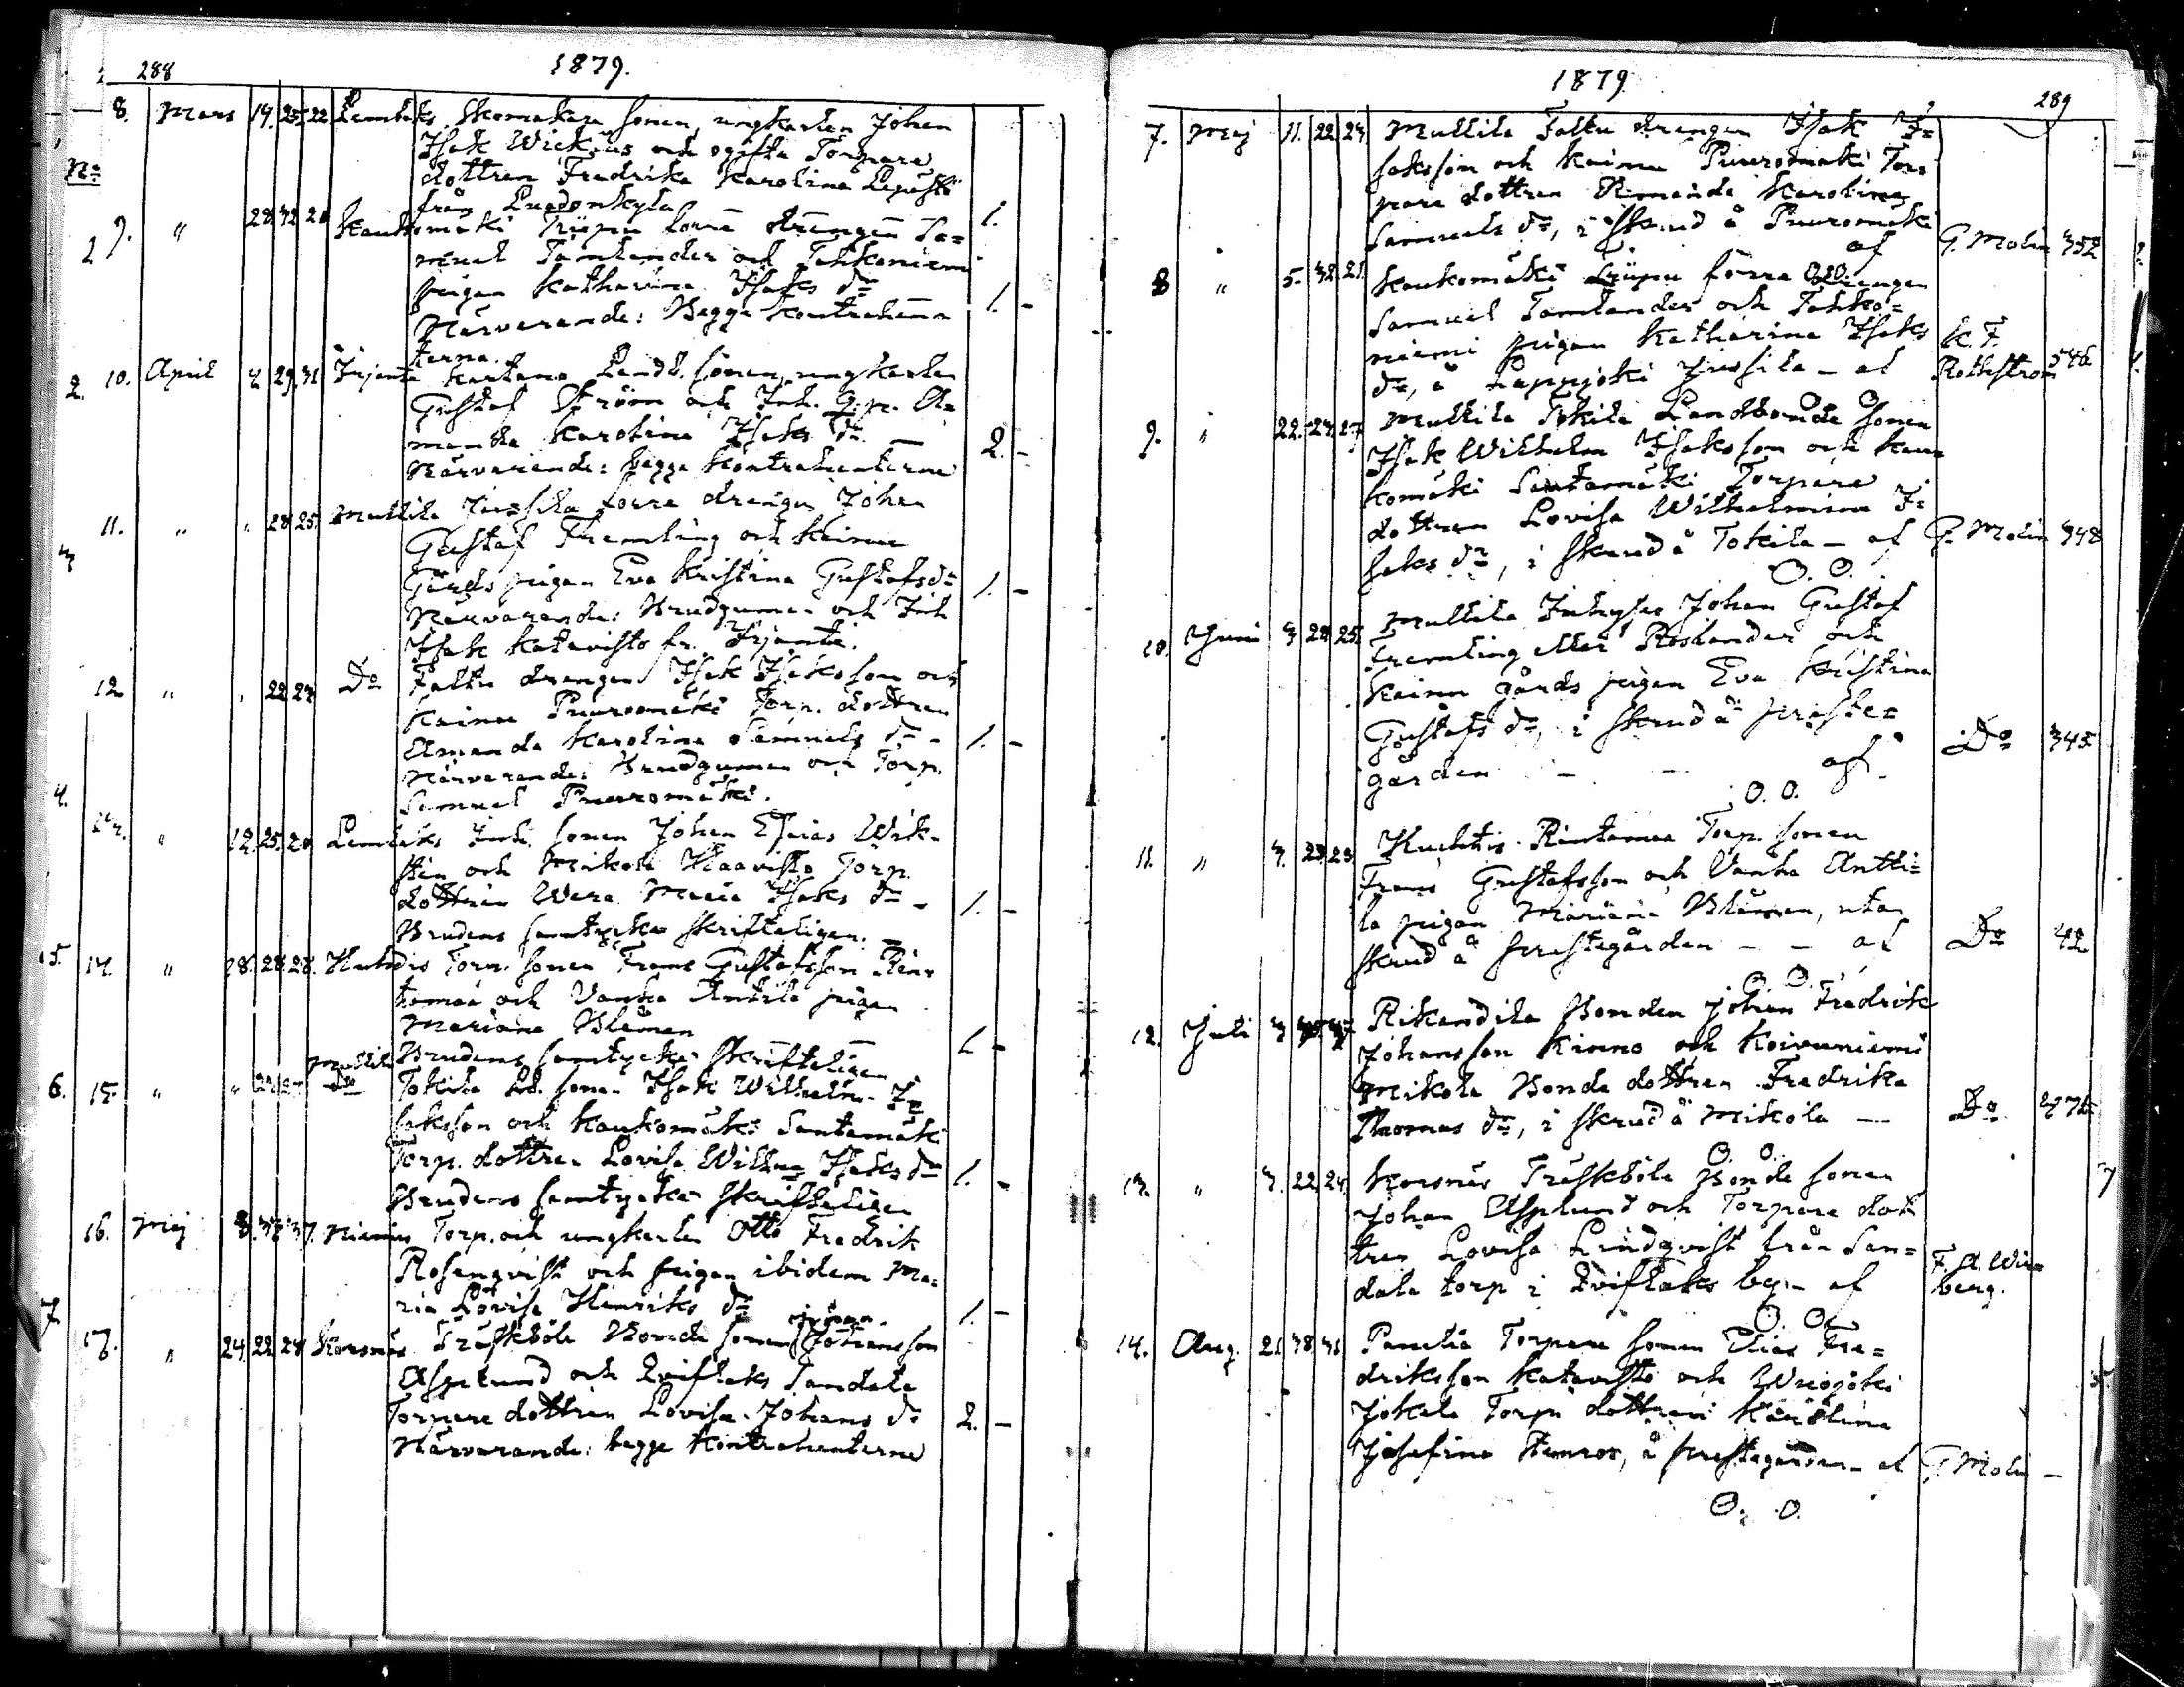 288
1879.
8. Mars 19. 25. 22 Lembaks Skomakare sonen, ungkarlen Johan
Isak Wickius och ogifta Torpare
dottren Fredrika Karolina
från 1.
9. " 28. 32 21 Kaukomäki förre drängen Sa=
muel Tamlander och Tahkoniemi
pigan Katharina Isaks dr 1. -
Närvarande: Begge Kontrahen
terna.
10. April 4 29. 31 Irjante Kartano Landb. sonen, ungkarlen
Gustaf Ström och Inh. A=
manda Karolina Isaks dr 2. -
Närvarande: begge Kontrahenterne
11. " " 28 25. Mullila Jussila förre drängen Johan
Gustaf Fremling och Kainu
Gårds pigan Eva Kristina Gustafs dr 1. -
Närvarande: Brudgummen och Inh
Isak Katavisto fr. Irjante.
12 " " 22 24 Do Faltu drengen Isak Isaksson och
Kainu Puuromäki Torp. dottren
Amanda Karolina Samuels dr - 1. -
Närvarande: Brudgummen och Torp.
Samuel Puuromäki.
" 12. 25. 20 Lembaks Inh. sonen Johan Esaias Wik-
sten och Mikola Haavisto Torp.
dottren Wera Maria Isaks dr - 1. -
Brudens samtycke skrifteligen. -
14. " 28. 28. Huhdis Torp. sonen Frans Gustafsson Rin-
tamaa och Vanha Anttila pigan
Mariana Blåman
Brudens samtycke skrifteligen 1. -
15. " " Mullila Do Tokila Ld. sonen Isak Wilhelm I=
saksson och Kaukomäki Santamäki
Torp. dottren Lovisa Wilhna Isaks dr 1. -
Brudens samtycke skrifteligen
16. Maj 8. 37. Niemis Torp. och ungkarlen Otto Fredrik
Rosenqvist och pigan ibidem Ma=
ria Lovisa Henriks dr 1. -
17. " 24. 22. 24 Korsnäs Träskböle Bonde sonen Johan Johansson
Asplund och Qviflaks Sandala
Torpare dottren Lovisa Johans dr 2. -
Närvarande: begge Kontrahenterne
1879
289
7. Maj 11. 22. 24. Mullila Faltu drängen Isak I=
saksson och Kainu Puuromäki Tor=
pare dottren Amanda Karolina
Samuels dr, i skrud å Puuromäki
af G. Molin 352
O. O.
8 " 5. 32. 21. Kaukomäki förre drängen
Samuel Tamlander och Tahko=
niemi pigan Katharina Isaks
dr, å Lappijoki Jussila - af K. F. Rothström 346
O. O.
9. " 22. 24. 27 Mullila Tokila Landbonde sonen
Isak Wilhelm Isaksson och Kau
komäki Santamäki Torpare
dottren Lovisa Wilhelmina I=
saks dr, i skrud å Tokila - af G. Molin 348
O. O.
10. Juni 3 28 25. Mullila Inhyses Johan Gustaf
Fremling eller Roslander och
Kainu gårds pigan Eva Kristina
Gustafs dr, i skrud å preste=
gården - - af Do 345
O. O.
11. " 7. Huhtis Rintamaa Torp. sonen
Frans Gustafsson och Vanha Antti=
la pigan Mariana Blåman, utan
skrud å prestegården - - af Do 42
O. O.
12. Juli 3 Rikandila Bonden Johan Fredrik
Johansson Kinno och Koivuniemi
Mikola Bonde dottren Fredrika
Thomas dr, i skrud å Mikola - Do
O. O.
13. " 22. 24. Korsnäs Träskböle Bonde sonen
Johan Asplund och Torpare dot
tren Lovisa Lindqvist från San=
dala torp i Qviflaks by - af berg.
O. O.
14. Aug. 21 38 31 Panelia Torpare sonen Elias Fre=
driksson Katavisto och
Jokela Torp. dottren Karolina
Josefina Stenros, å prestegården - af G Molin -
O. O.